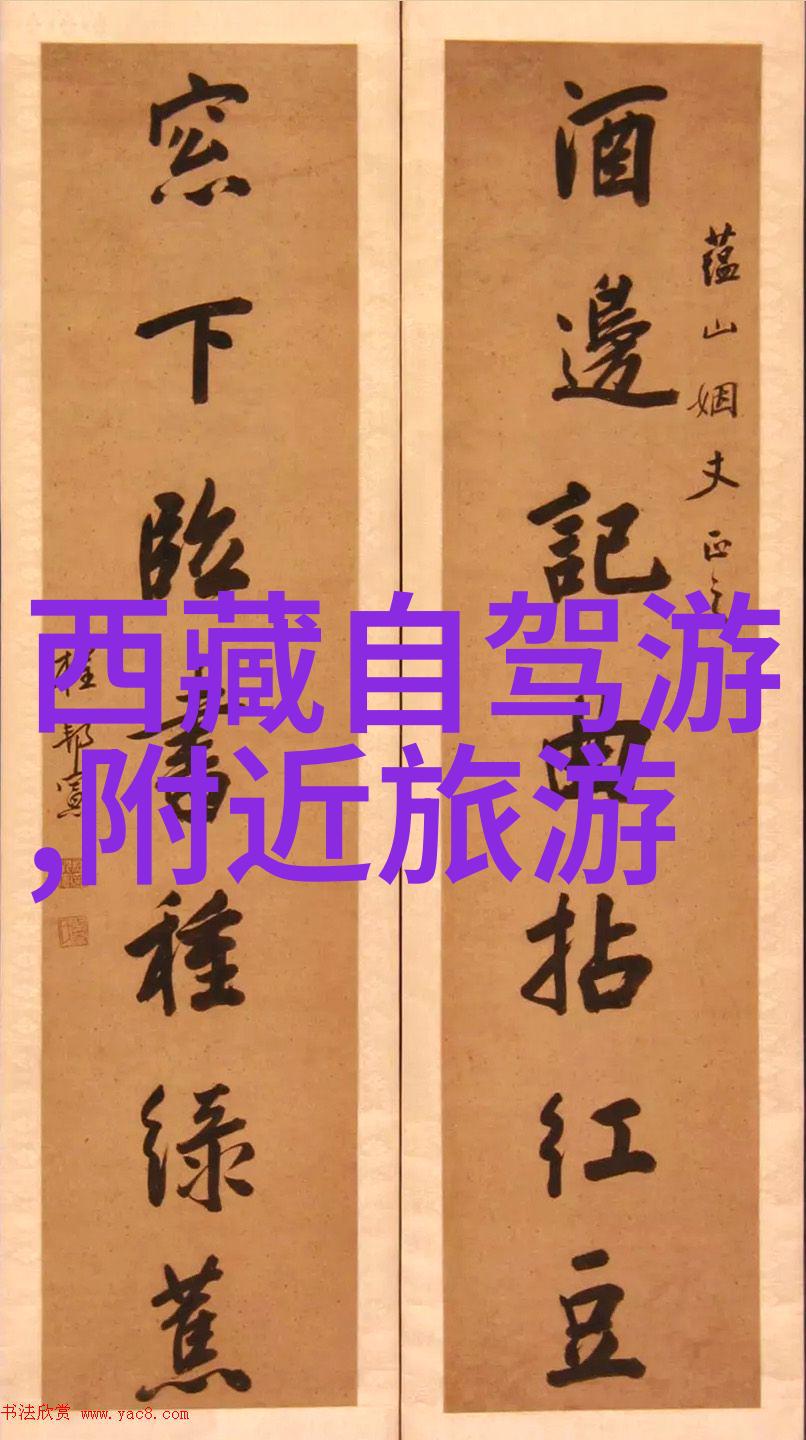 蘊山姻丈正之
酒邊記曲拈红豆
窓下臨書種緑蕉
西藏自驾游
,附近旅游
书法欣赏 www.yac8.com